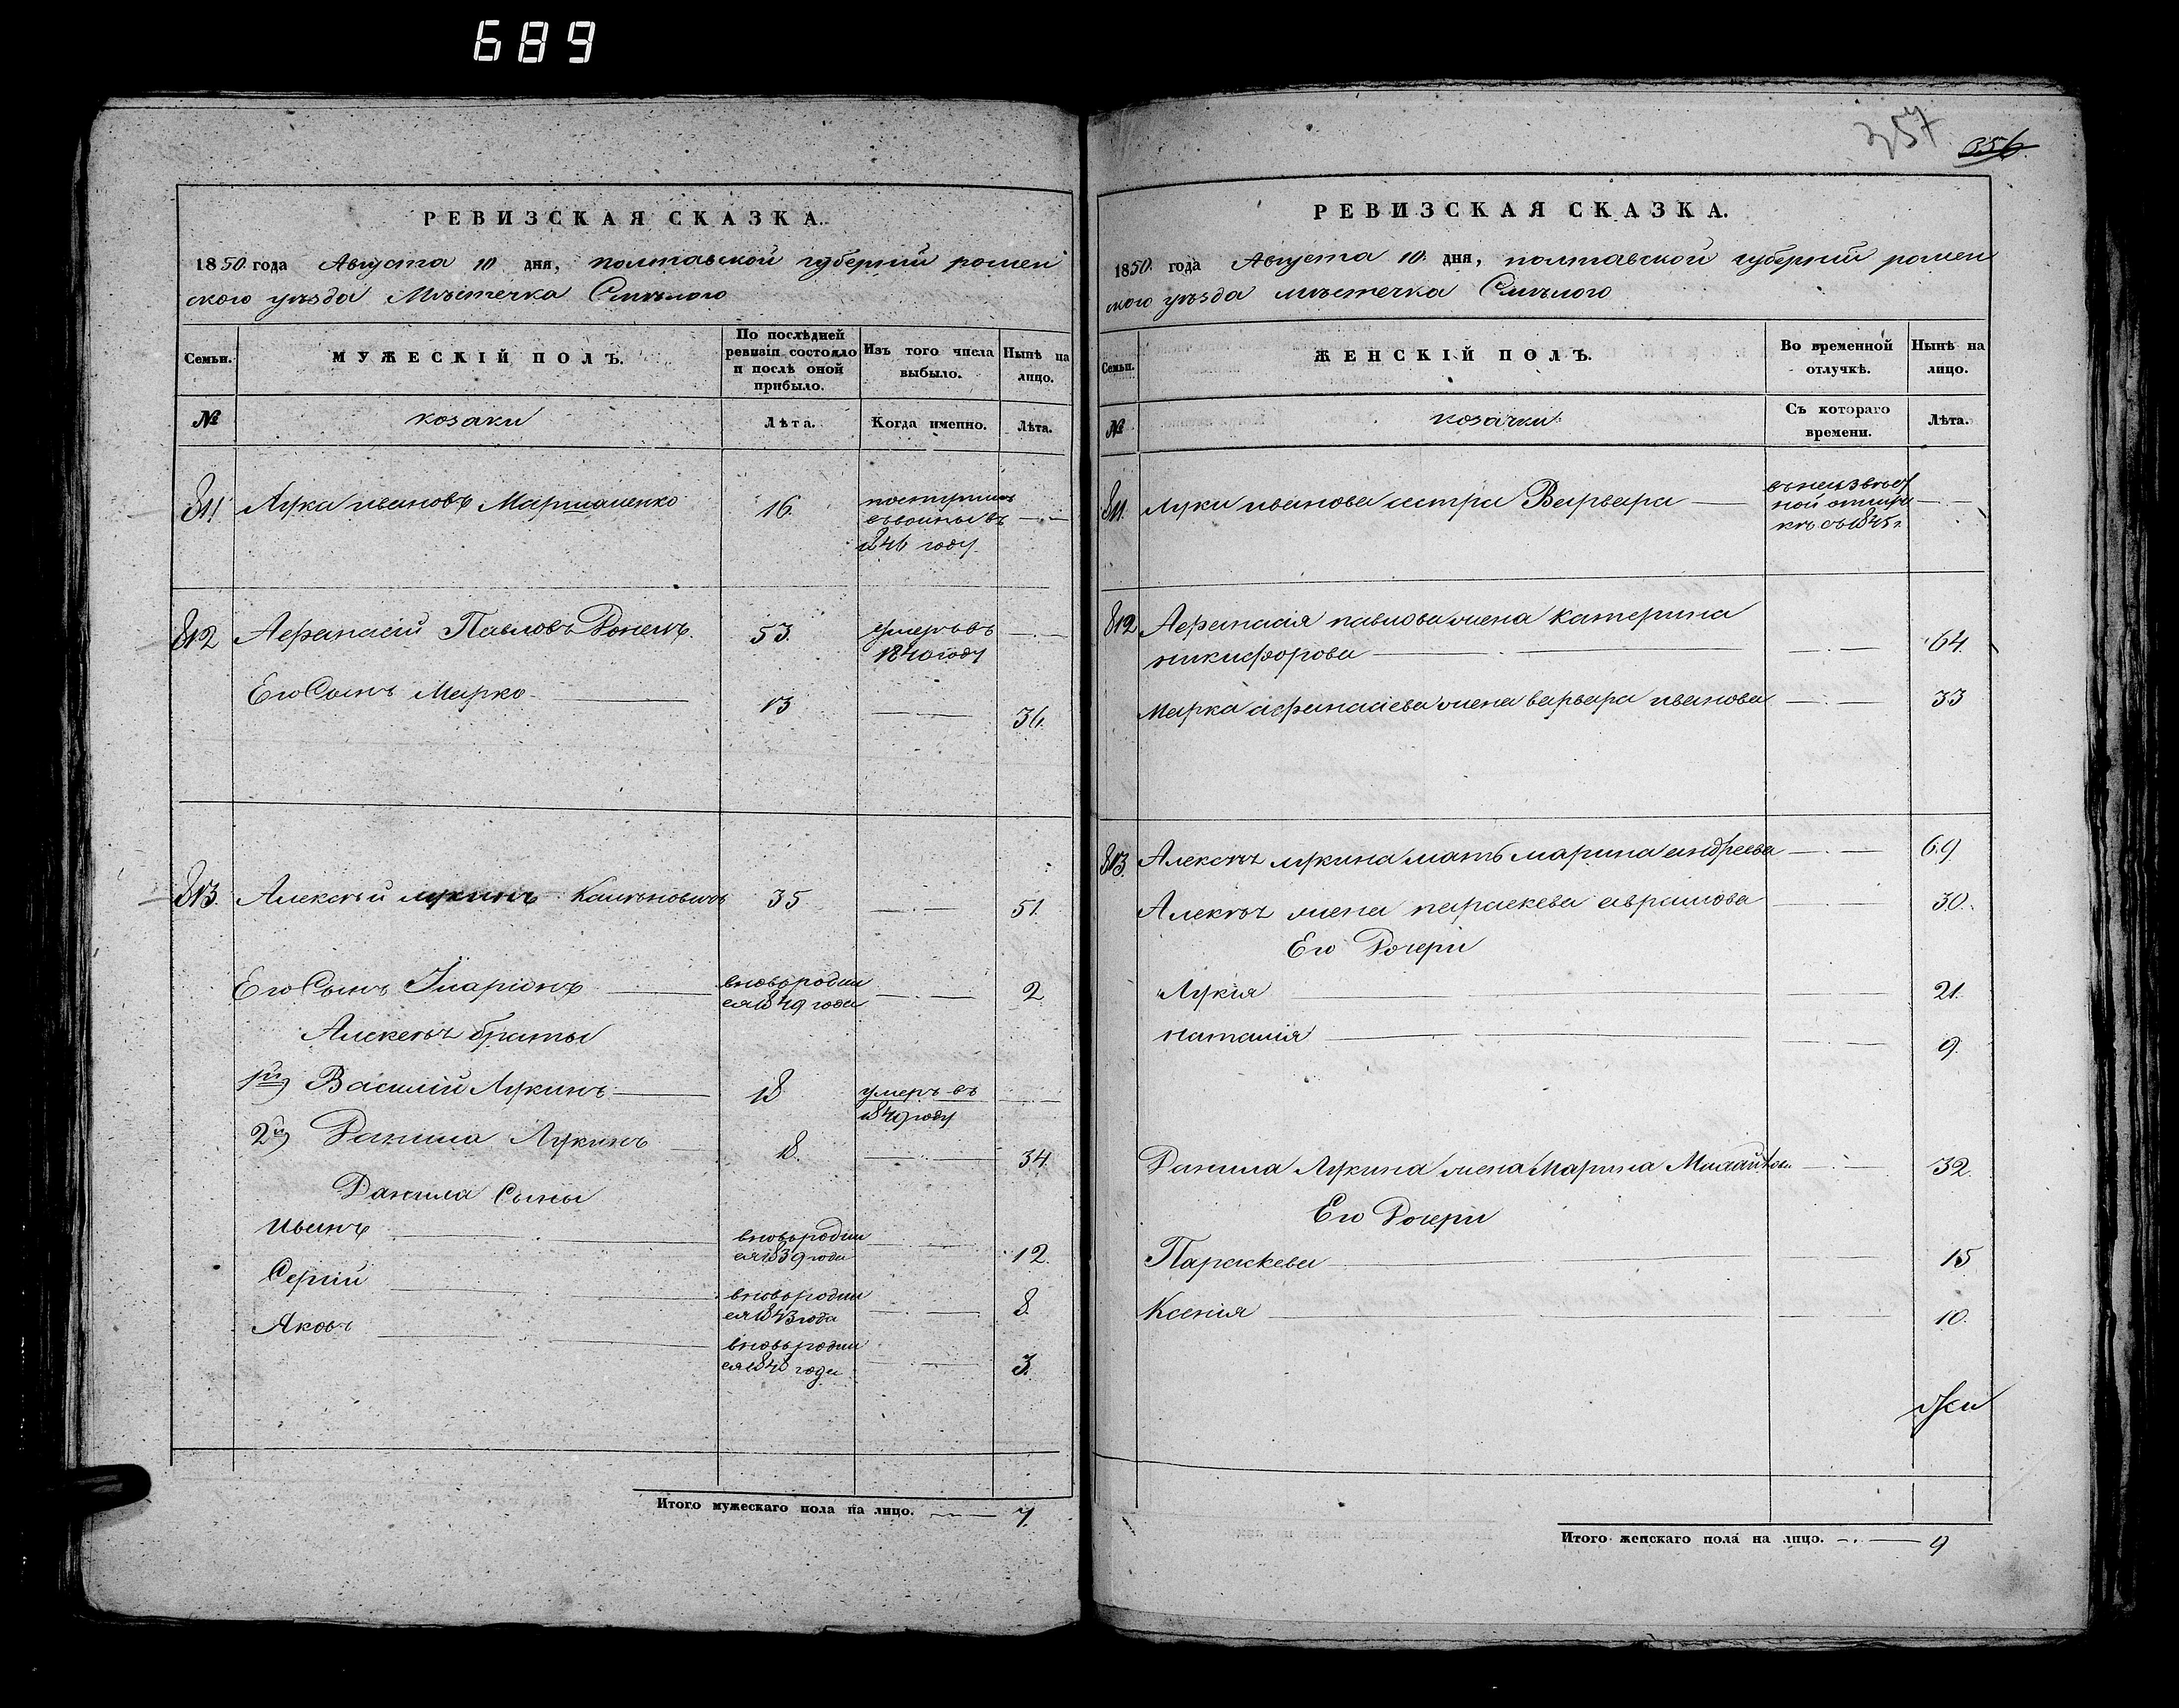 689
РЕВИЗСКАЯ СКАЗКА.
1850 года Августа 10 дня, полтавской губерніи ромен
ского уѣзда Мѣстечка Смѣлого
Семьи.
МУЖЕСКІЙ ПОЛЪ.
По послѣдней
ревизіи состояло
и послѣ оной
прибыло.
Изъ того числа
выбыло.
Нынѣ на
лицо.
№
козаки
Лѣта.
Когда именно.
Лѣта.
811 Лука ивановъ 16.
1846 году
812 Афанасій Павловъ 53. умеръ въ
1840 году
Его Сынъ Марко 13 36.
813. Алексѣй лукинъ 35 51.
Его Сынъ Иларіонъ вновьродил
ся 1849 года 2
Алексѣя братья
1й Василій Лукинъ 18 умеръ въ
1849 году
2й Данила Лукинъ 18. 34
Данила Сыны
Иванъ вновьродил
ся 1839 года 12.
Сергій вновьродил
ся 1843 года 8.
Яковъ вновьродил
ся 1848 года 3.
Итого мужескаго пола на лицо. 7.
357 356.
РЕВИЗСКАЯ СКАЗКА.
1850. года Августа 10. дня, полтавской губерніи ромен
ского уѣзда мѣстечка Смѣлого
Семьи.
ЖЕНСКІЙ ПОЛЪ.
Во временной
отлучкѣ.
Нынѣ на
лицо.
№
козачки
Съ котораго
времени.
Лѣта.
811. Луки иванова сестра Варвара въ неизвѣст
ной отлуч
кѣ съ 1845 г.
812 Афанасія павлова жена катерина
никифорова 64.
Марка афанасіева жена варвара иванова 33
813. Алексѣя лукина мать марина андреева 69
Алексѣя жена параскева аврамова 30.
Его Дочери
Лукія 21.
наталія 9.
Данила Лукина жена Марина 32.
Его Дочери
Параскева 15
Ксенія 10.
Итого женскаго пола на лицо. 9